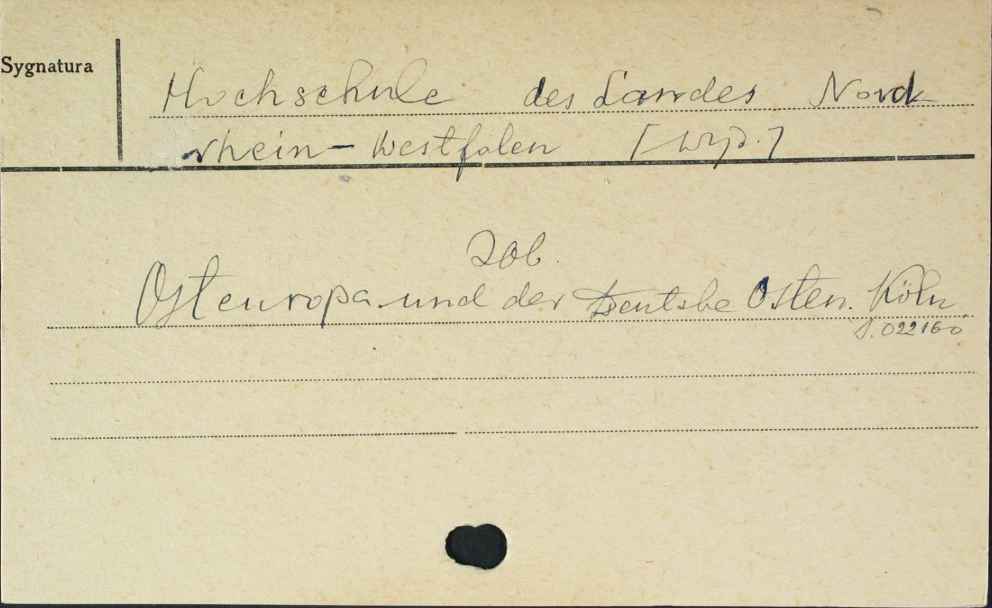 Sygnatura
Hochschule des Landes Nord
rhein-Westfalen [wyd.]
Zob.
Osteuropa und der Deutshe Osten. Köln.
S. 022160